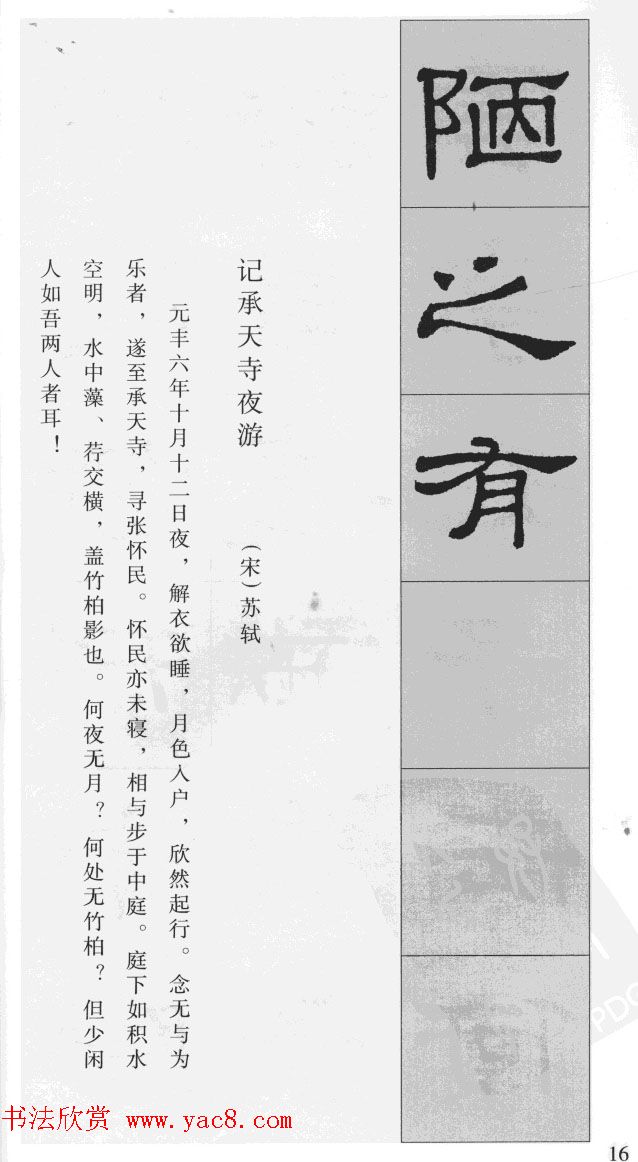 陋之有
记承天寺夜游 （宋）苏轼
元丰六年十月十二日夜，解衣欲睡，月色入户，欣然起行。念无与为
乐者，遂至承天寺，寻张怀民。怀民亦未寝，相与步于中庭。庭下如积水
空明，水中藻、荇交横，盖竹柏影也。何夜无月？何处无竹柏？但少闲
人如吾两人者耳！
书法欣赏 www.yac8.com
16